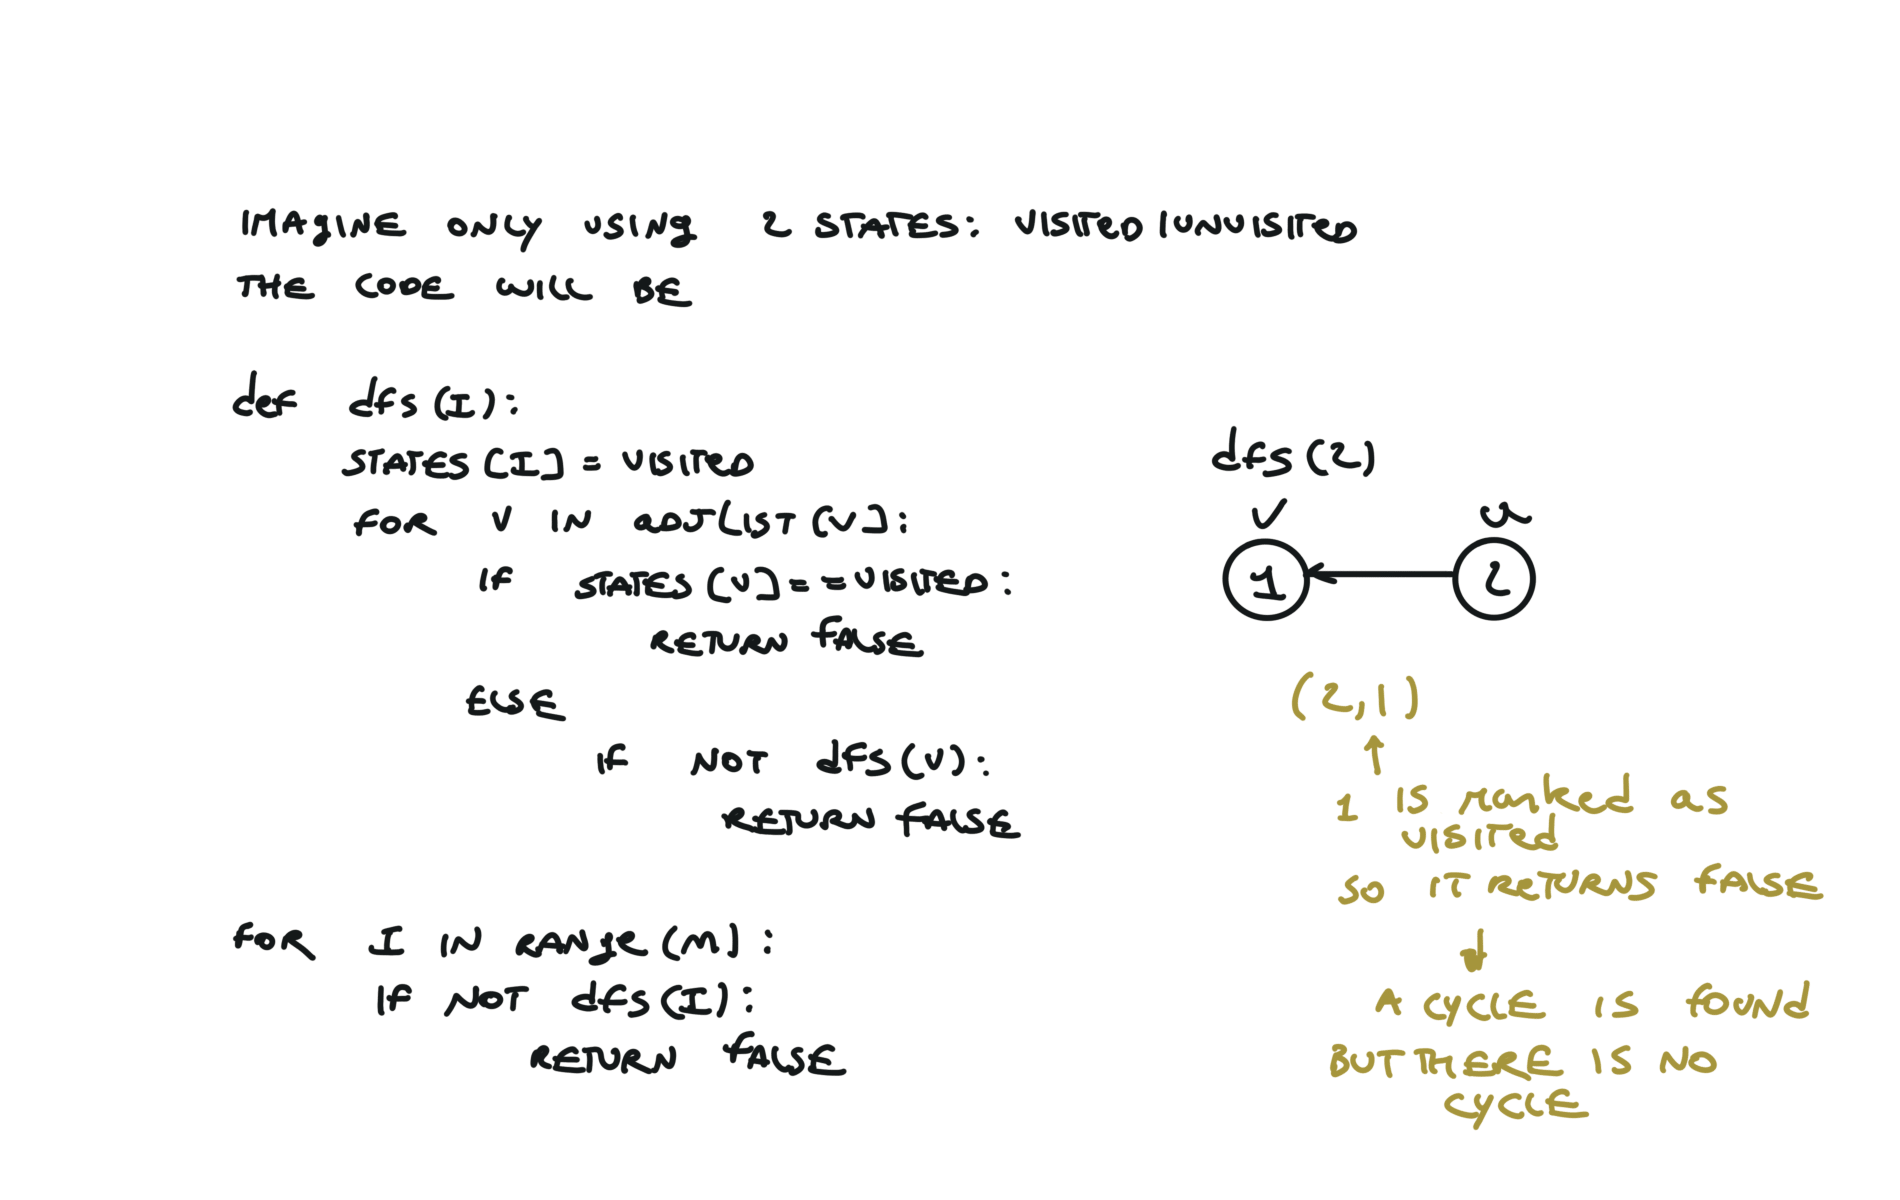 IMAgINE ONLY USINg 2 STATES: VISITED / UNVISITED
THE CODE WILL BE
def dfs (I):
STATES [I] = VISITED
FOR V IN ADJLIST [V]:
IF STATES [V] == VISITED:
RETURN FALSE
ELSE
IF NOT dFS (V):
RETURN FALSE
FOR I IN RANgE (M):
IF NOT dfs (I):
RETURN FALSE
dfs (2)
V u
1 2
(2,1)
1 IS marked as
VISITEd
SO IT RETURNS FALSE
A CYCLE IS fOUNd
BUT THERE IS NO
CYCLE